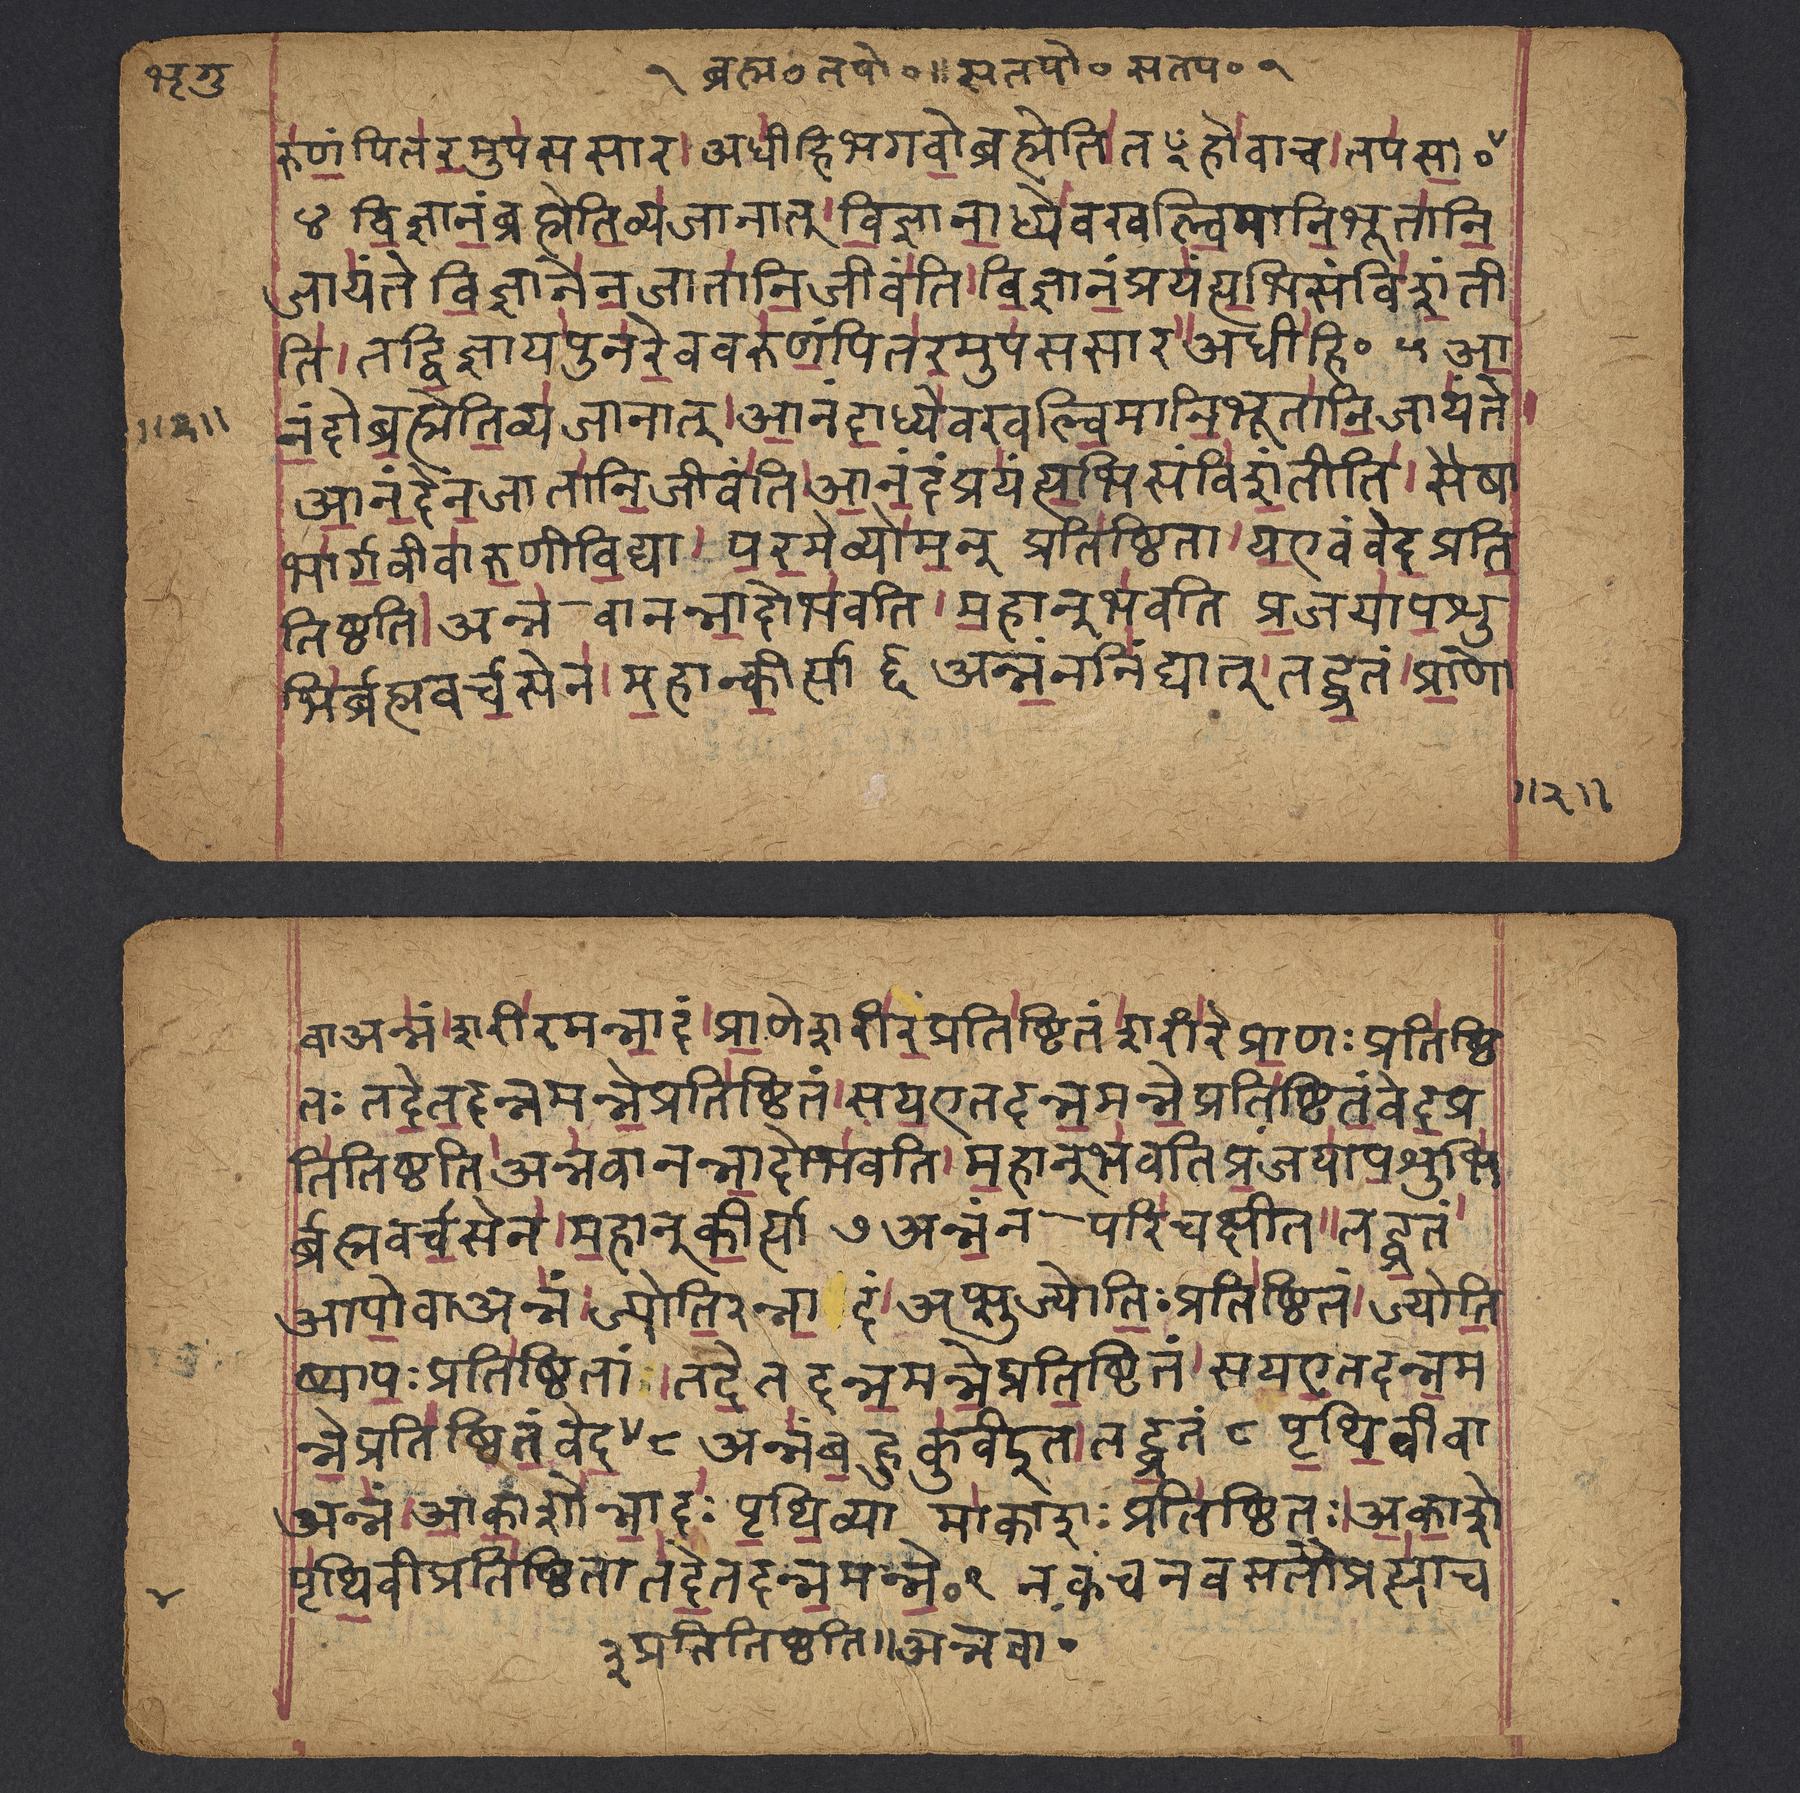 भृगु
१ ब्रह्म० तपो०॥ सतपो० सतप० १
रुणं पितरमुपससार। अधीहिभगवोब्रह्मेति। तꣳहोवाच। तपसा०
४ विज्ञानंब्रह्मेतिव्यजानात्। विज्ञानाध्येवखल्विमानिभूतानि
जायंते विज्ञानेनजातानिजीवंति। विज्ञानंप्रयंत्यभिसंविशंती
ति। तद्विज्ञायपुनरेववरुणंपितरमुपससार। अधीहि० ५ आ
नंदोब्रह्मेतिव्यजानात्। आनंदाध्येवखल्विमानिभूतानिजायंते
॥२॥
आनंदेनजातानिजीवंति। आनंदंप्रयंत्यभिसंविशंतीति। सैषा
भार्गवीवारुणीविद्या। परमेव्योमन् प्रतिष्ठिता। यएवंवेदप्रति
तिष्ठति। अन्नवानन्नादोभवति। महान्भवति प्रजयापशु
भिर्ब्रह्मवर्चसेन। महान्कीर्त्या ६ अन्नंननिंद्यात्। तद्व्रतं। प्राणो
॥२॥
वाअन्नं। शरीरमन्नादं। प्राणेशरीरंप्रतिष्ठितं। शरीरेप्राणःप्रतिष्ठि
तः। तदेतदन्नमन्नेप्रतिष्ठितं। सयएतदन्नमन्नेप्रतिष्ठितंवेदप्र
तितिष्ठति। अन्नवानन्नादोभवति। महान्भवतिप्रजयापशुभि
र्ब्रह्मवर्चसेन। महान्कीर्त्या ७ अन्नंन परिचक्षीत। तद्व्रतं
आपोवाअन्नं। ज्योतिरन्नादं। अप्सुज्योतिःप्रतिष्ठितं। ज्योति
ष्यापःप्रतिष्ठितां। तदेतदन्नमन्नेप्रतिष्ठितं। सयएतदन्नम
न्नेप्रतिष्ठितंवेद ८ अन्नंबहुकुर्वीत। तद्व्रतं ८ पृथिवीवा
अन्नं। आकाशोन्नादः पृथिव्यामाकाशःप्रतिष्ठितः। अकाशे
पृथिवीप्रतिष्ठिता तदेतदन्नमन्ने०९ नकंचनवसतौप्रत्याच
३प्रतितिष्ठति॥अन्नवा०